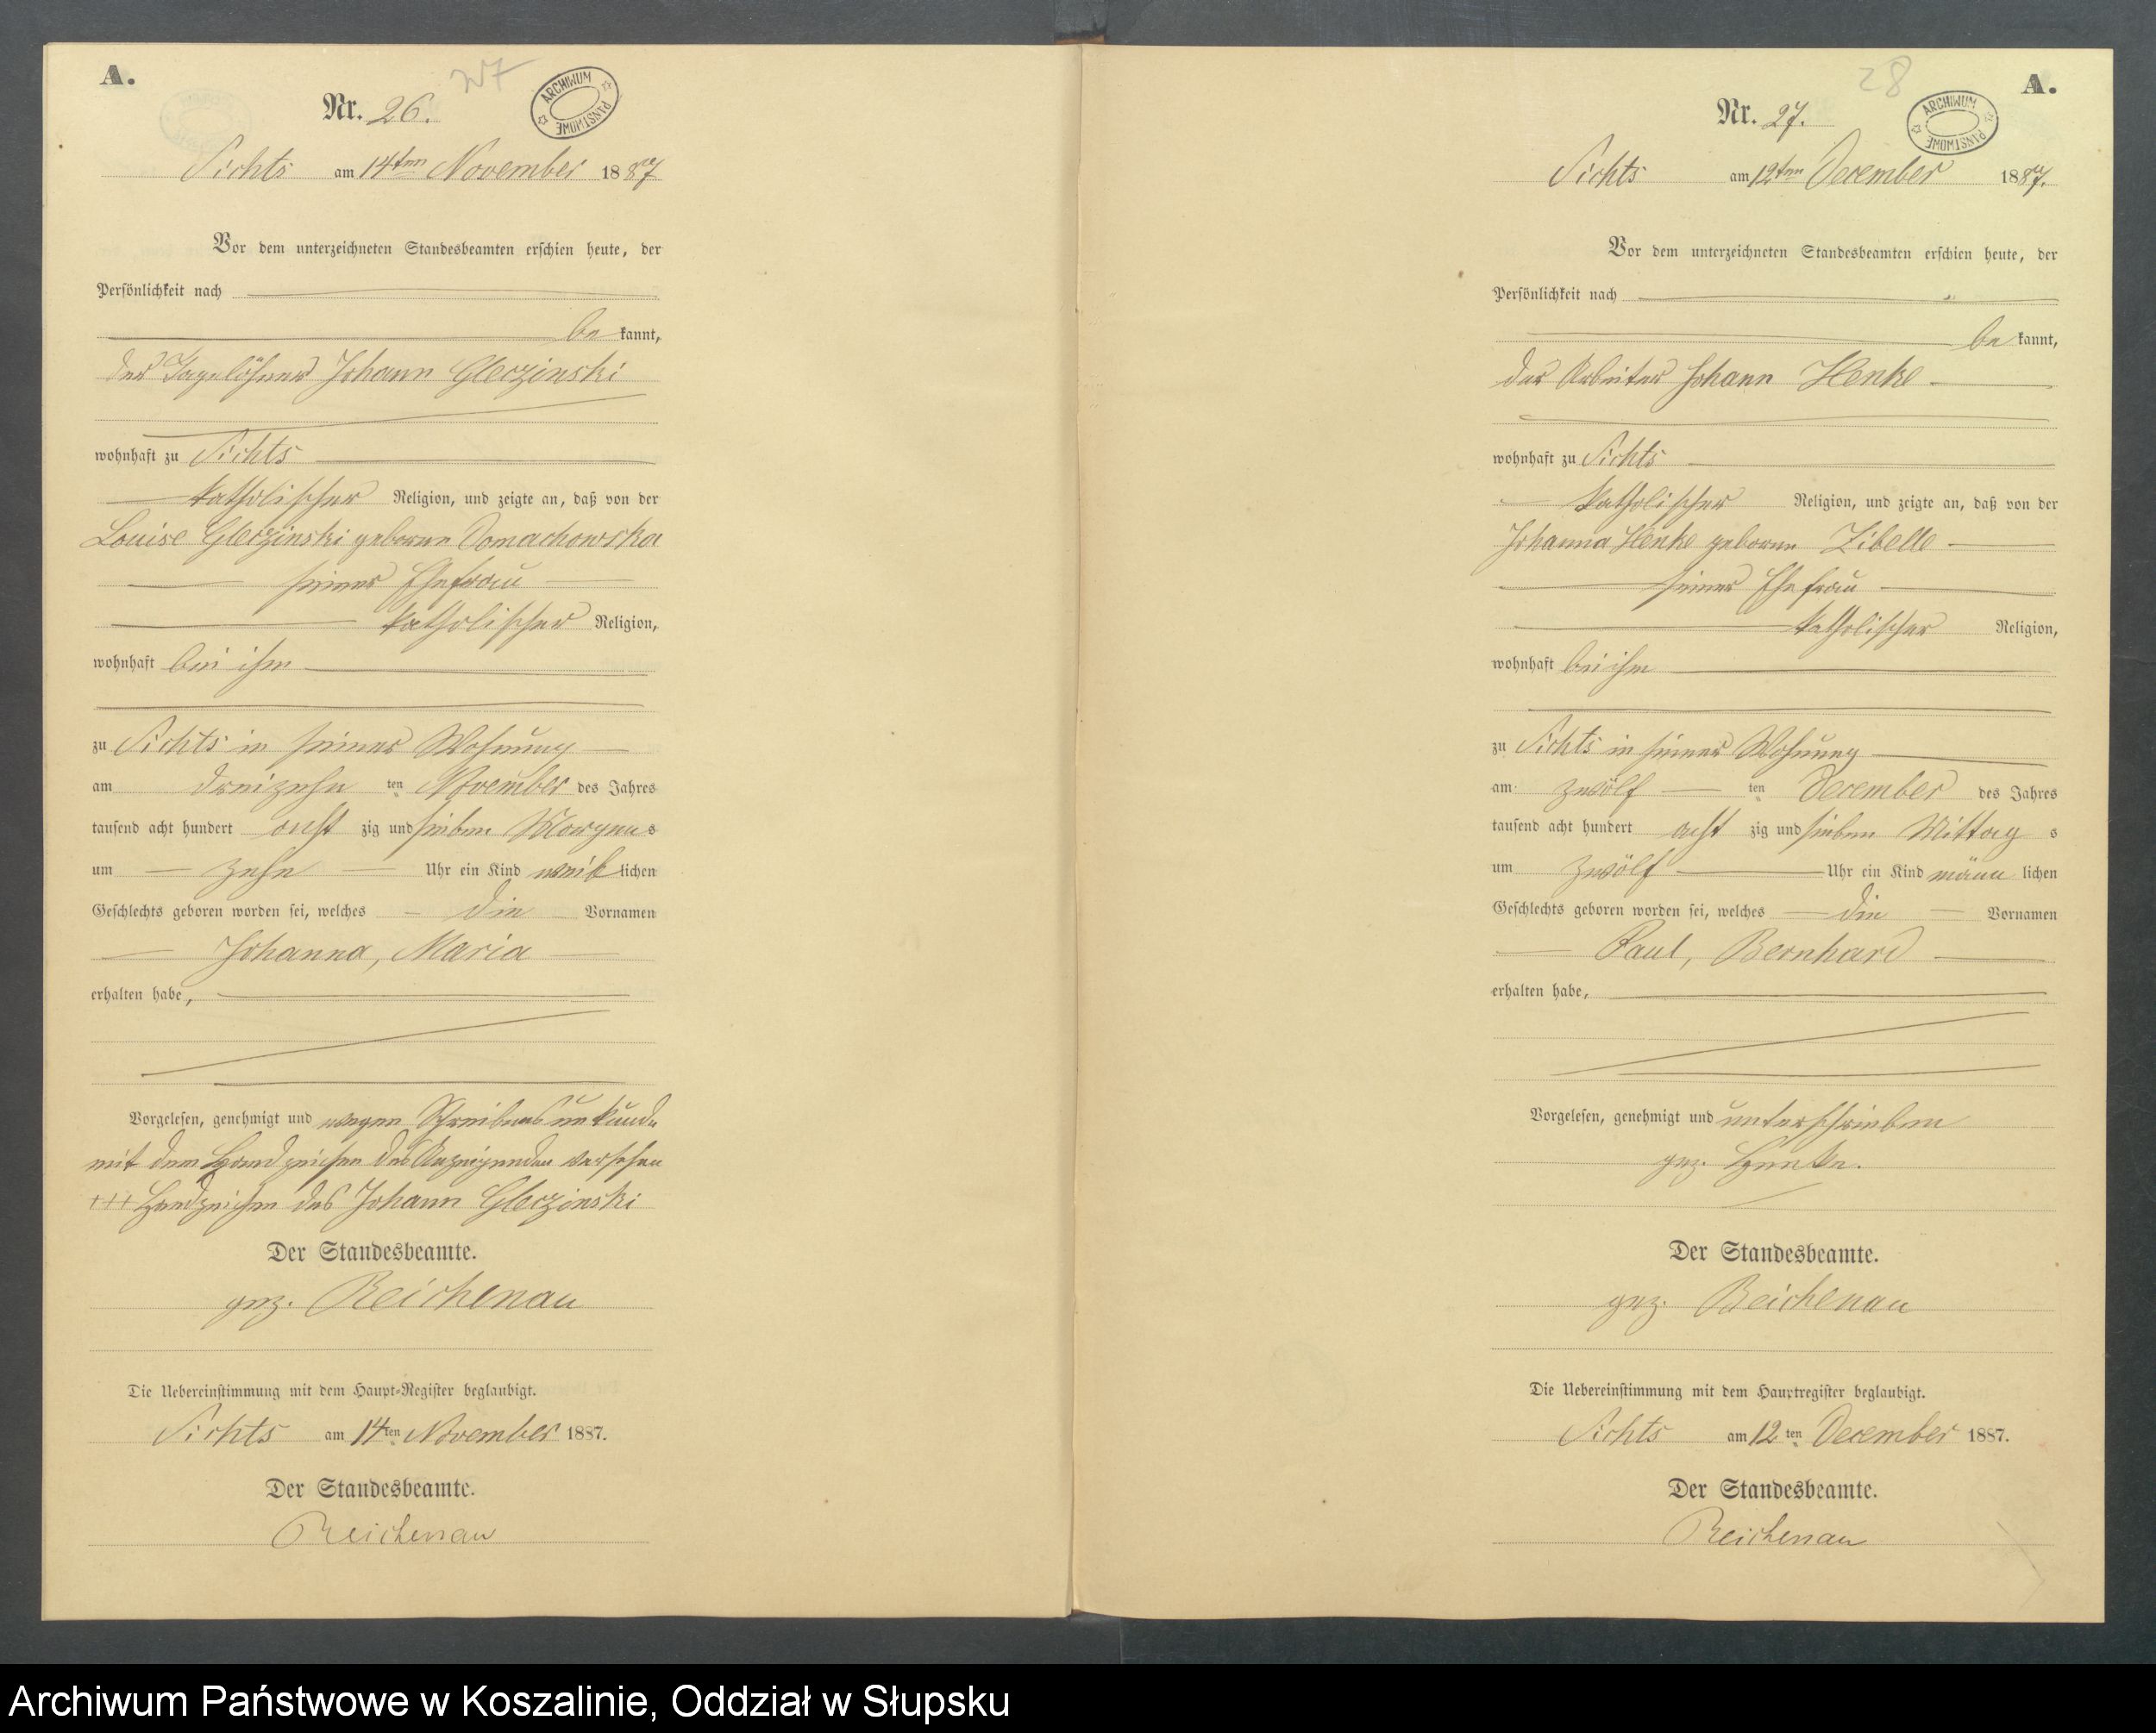 A.
27
Nr. 26.
ARCHIWUM PAŃSTWOWE
Sichts am 14ten November 1887
Vor dem unterzeichneten Standesbeamten erschien heute, der
Persönlichkeit nach
be kannt,
der Tagelöhner Johann Gleczinski
wohnhaft zu Sichts
katholischer Religion, und zeigte an, daß von der
Louise Gleczinski geborene Domachowska
seiner Ehefrau
katholischer Religion,
wohnhaft bei ihm
zu Sichts in seiner Wohnung
am dreizehn ten November des Jahres
tausend acht hundert acht zig und sieben Morgens
um zehn Uhr ein Kind weib lichen
Geschlechts geboren worden sei, welches die Vornamen
Johanna, Maria
erhalten habe,
Vorgelesen, genehmigt und wegen Schreibensunkunde
mit dem Handzeichen des Anzeigenden versehen
+++ Handzeichen des Johann Gleczinski
Der Standesbeamte.
gez. Reichenau
Die Uebereinstimmung mit dem Haupt-Register beglaubigt.
Sichts am 14ten November 1887.
Der Standesbeamte.
Reichenau
28
A.
Nr. 27.
ARCHIWUM PAŃSTWOWE
Sichts am 12ten December 1887.
Vor dem unterzeichneten Standesbeamten erschien heute, der
Persönlichkeit nach
be kannt,
der Arbeiter Johann Henke
wohnhaft zu Sichts
katholischer Religion, und zeigte an, daß von der
Johanna Henke geborene Zibelle
seiner Ehefrau
katholischer Religion,
wohnhaft bei ihm
zu Sichts in seiner Wohnung
am zwölf ten December des Jahres
tausend acht hundert acht zig und sieben Mittag s
um zwölf Uhr ein Kind männ lichen
Geschlechts geboren worden sei, welches die Vornamen
Paul, Bernhard
erhalten habe,
Vorgelesen, genehmigt und unterschrieben
gez. Henke.
Der Standesbeamte.
gez. Reichenau
Die Uebereinstimmung mit dem Hauptregister beglaubigt.
Sichts am 12ten December 1887.
Der Standesbeamte.
Reichenau
Archiwum Państwowe w Koszalinie, Oddział w Słupsku